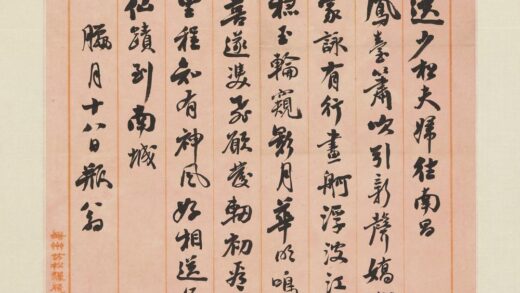 送少松夫婦往南昌
鳳臺簫吹引新聲嬌
家詠有行畫舸浮波江
穩玉輪窺影月華明鳴
喜遂雙飛願發軔初看
里程知有神風好相送
仙蹟到南城
臘月十八日瓶翁